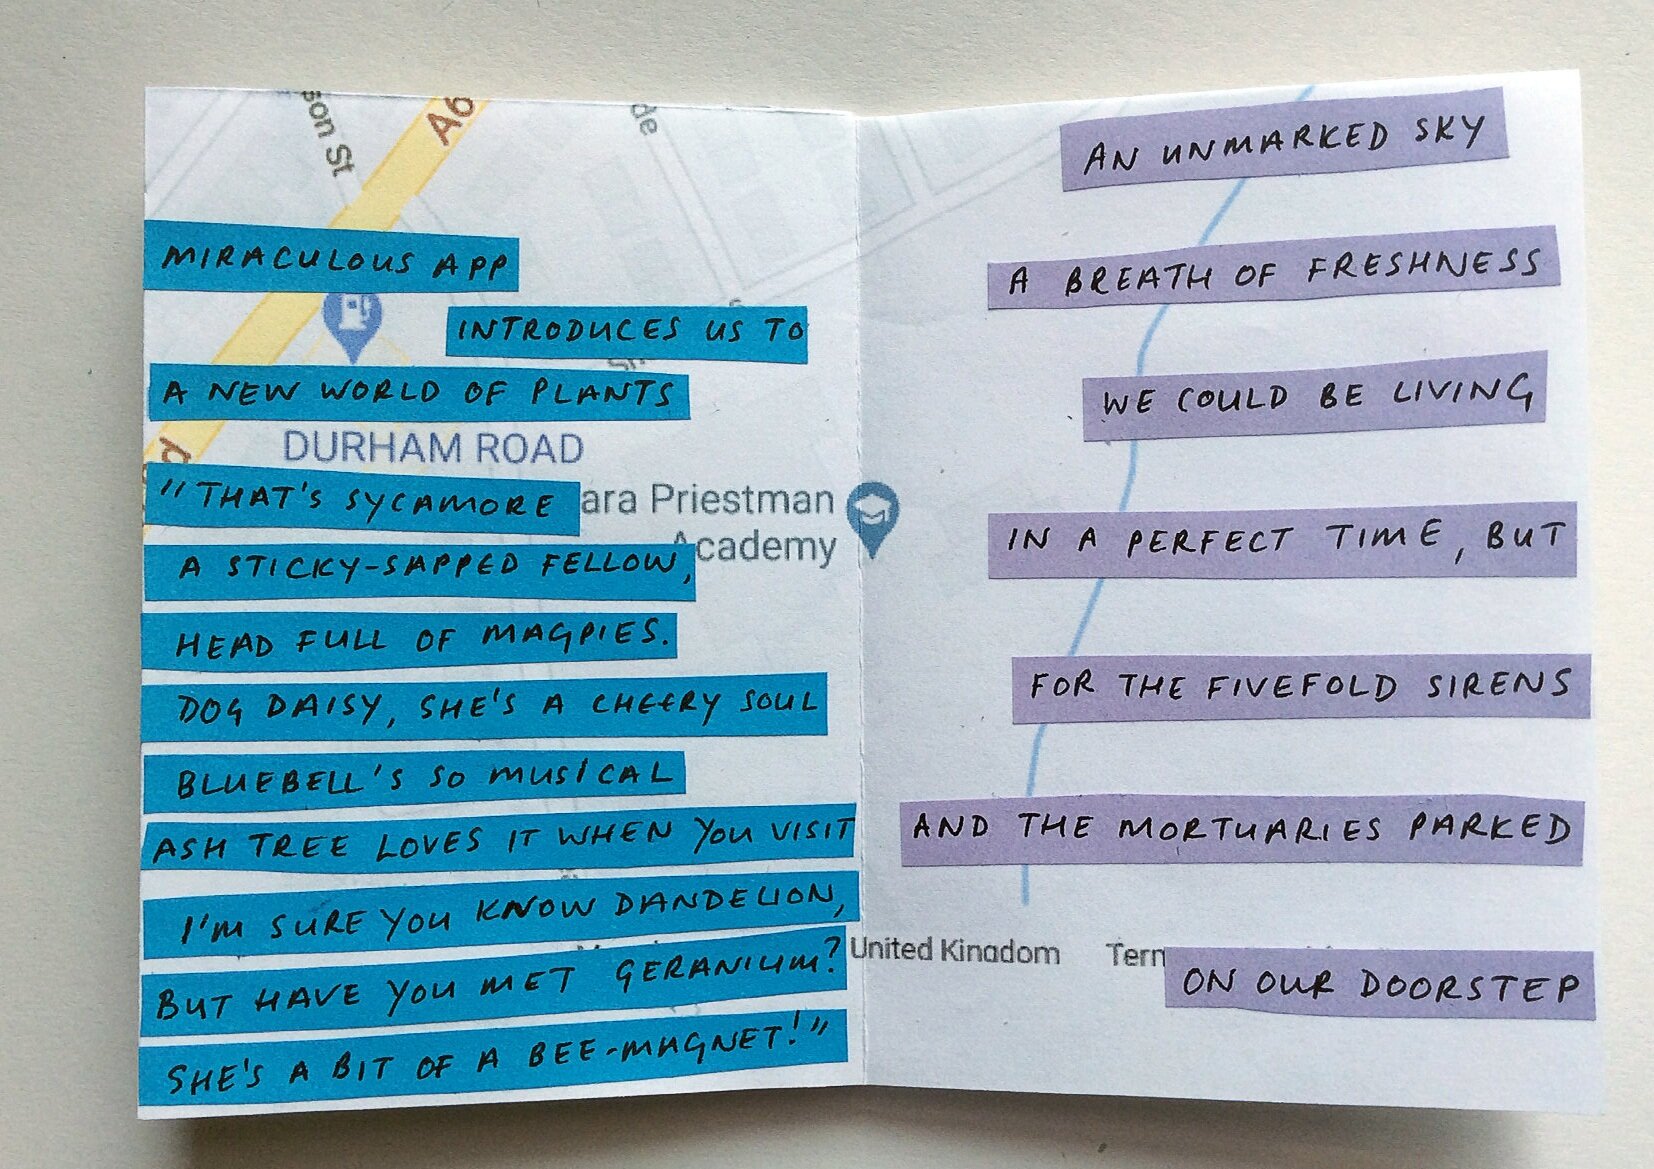 son St
A6
de
MIRACULOUS APP
INTRODUCES US TO
A NEW WORLD OF PLANTS
DURHAM ROAD
"THAT'S SYCAMORE
ara Priestman
Academy
A STICKY-SAPPED FELLOW,
HEAD FULL OF MAGPIES.
DOG DAISY, SHE'S A CHEERY SOUL
BLUEBELL'S SO MUSICAL
ASH TREE LOVES IT WHEN YOU VISIT
I'M SURE YOU KNOW DANDELION,
BUT HAVE YOU MET GERANIUM?
SHE'S A BIT OF A BEE-MAGNET!"
AN UNMARKED SKY
A BREATH OF FRESHNESS
WE COULD BE LIVING
IN A PERFECT TIME, BUT
FOR THE FIVEFOLD SIRENS
AND THE MORTUARIES PARKED
United Kingdom Term
ON OUR DOORSTEP